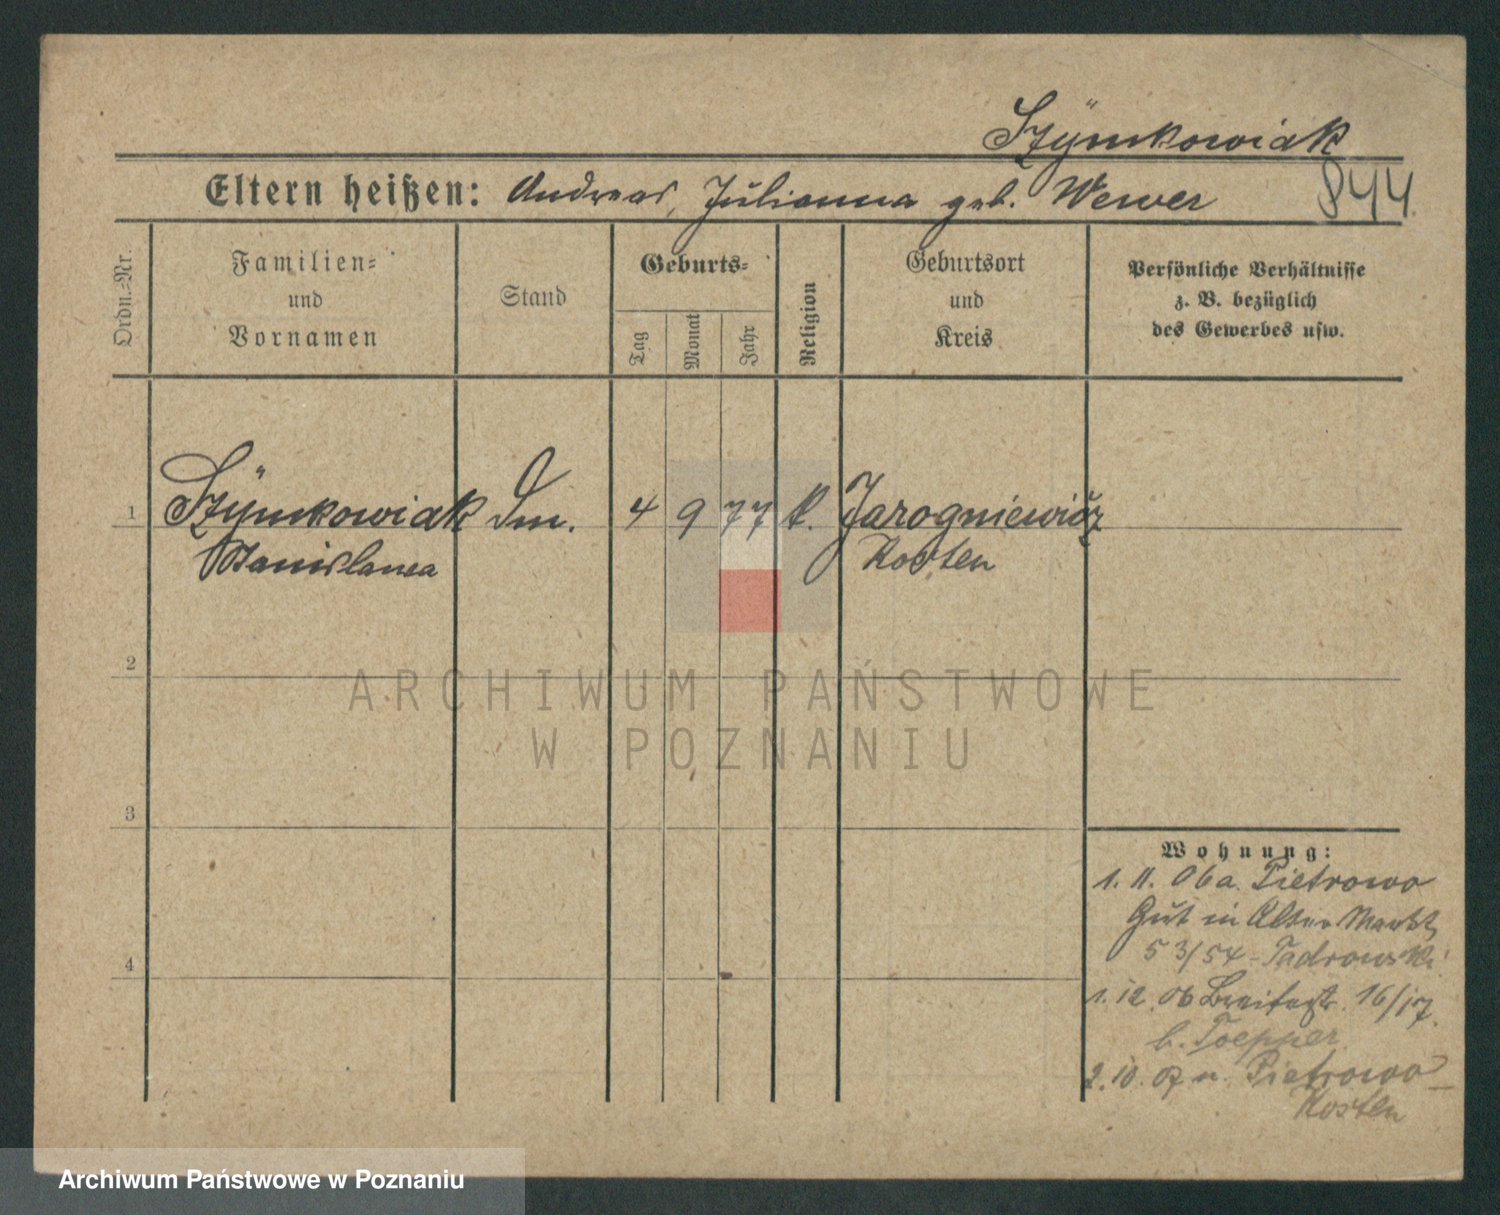 Szÿmkowiak
Eltern heißen: Andreas, Julianna geb. Wewer
844
Ordn.-Nr.
Familien-
und
Vornamen
Stand
Geburts-
Tag
Monat
Jahr
Religion
Geburtsort
und
Kreis
Persönliche Verhältnisse
z. B. bezüglich
des Gewerbes usw.
1 Szÿmkowiak Dm. 4 9 77 k. Jarogniewicz
Stanislawa Kosten
2
ARCHIWUM PAŃSTWOWE
W POZNANIU
3
Wohnung:
1. 11. 06 a. Pietrowo
Gut in Alter Markt
53/54 - Tadrowski
1. 12. 06 Breitestr. 16/17.
b. Toepper
2. 10. 07 n. Pietrowo
Kosten
4
Archiwum Państwowe w Poznaniu